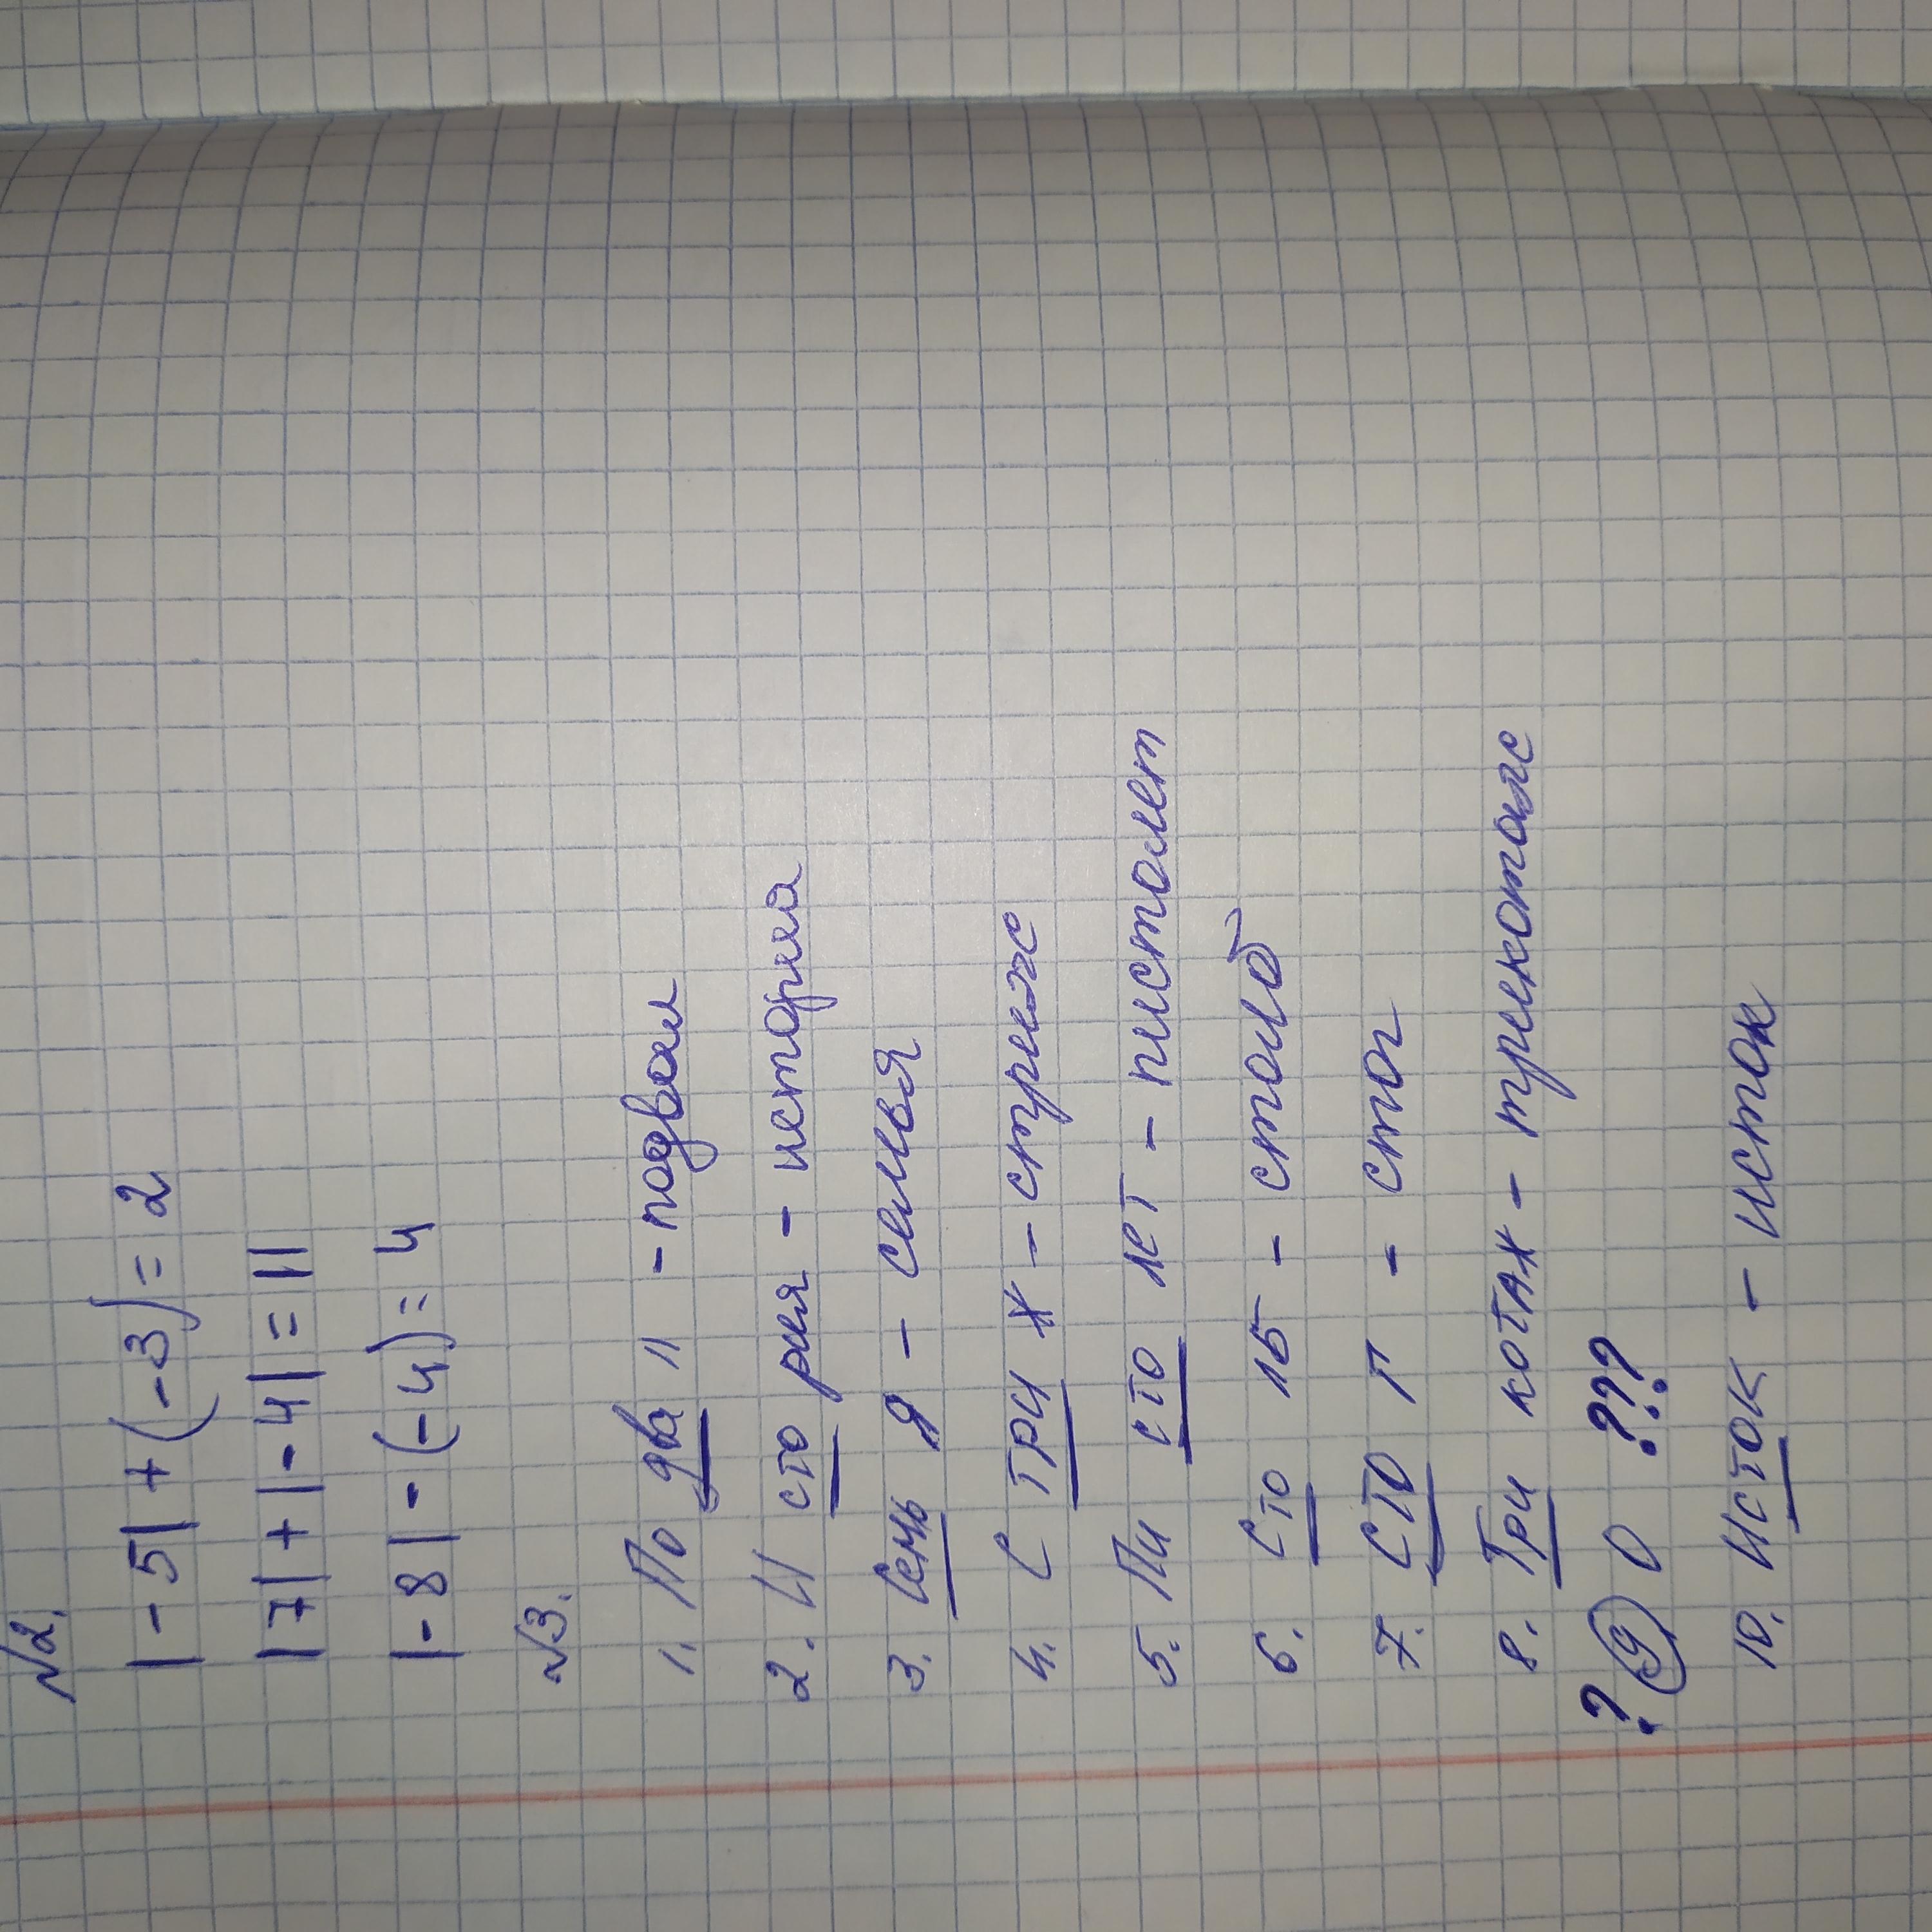 №2.
|-5|+(-3)=2
|7|+|-4|=11
|-8|-(-4)=4
№3.
1. По два л - подвал
2. И сто рия - история
3. Семь Я - семья
4. С три ж - стриж
5. Пи сто лет - пистолет
6. Сто лб - столб
7. Сто г - стог
8. Три котаж - трикотаж
? 9 О ???
10. Исток - исток